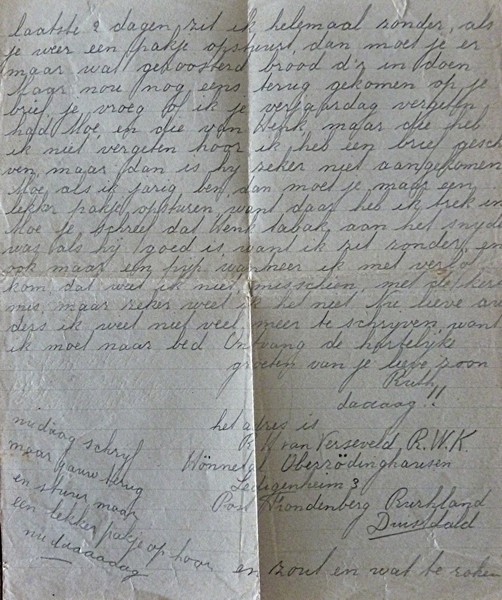 laatste 2 dagen zit ik helemaal zonder, als
je weer een pakje opstuurt, dan moet je er
maar wat geroosterd brood d'r in doen
nou nog eens terug gekomen op je
brief je vroeg of ik je verjaardag vergeten
had Moe, en die van Henk, maar die heb
ik niet vergeten hoor ik heb een brief gesch
ven, maar dan is hy zeker niet aangekomen
Moe, als ik jarig ben, dan moet je maar een
lekker pakje opsturen want daar heb ik trek in
Moe je schreef dat Henk tabak aan het snyde
was als hy goed is, want ik zit zonder, en
ook maar een pyp, wanneer ik met verlof
kom dat weet ik niet misschien, met de kers
mis, maar zeker weet ik het niet. Nu lieve
ders ik weet niet veel meer te schryven, want
ik moet naar bed Ontvang de hartelyke
groeten van je lieve zoon
daaaag!!
het adres is
R. H van Verseveld R.W.K.
Ledigenheim 3
Post Ruhrland
nu daag schryf
maar gauw terug
en stuur maar
een lekker pakje op hoor
nu daaaaag
en zout en wat te roken